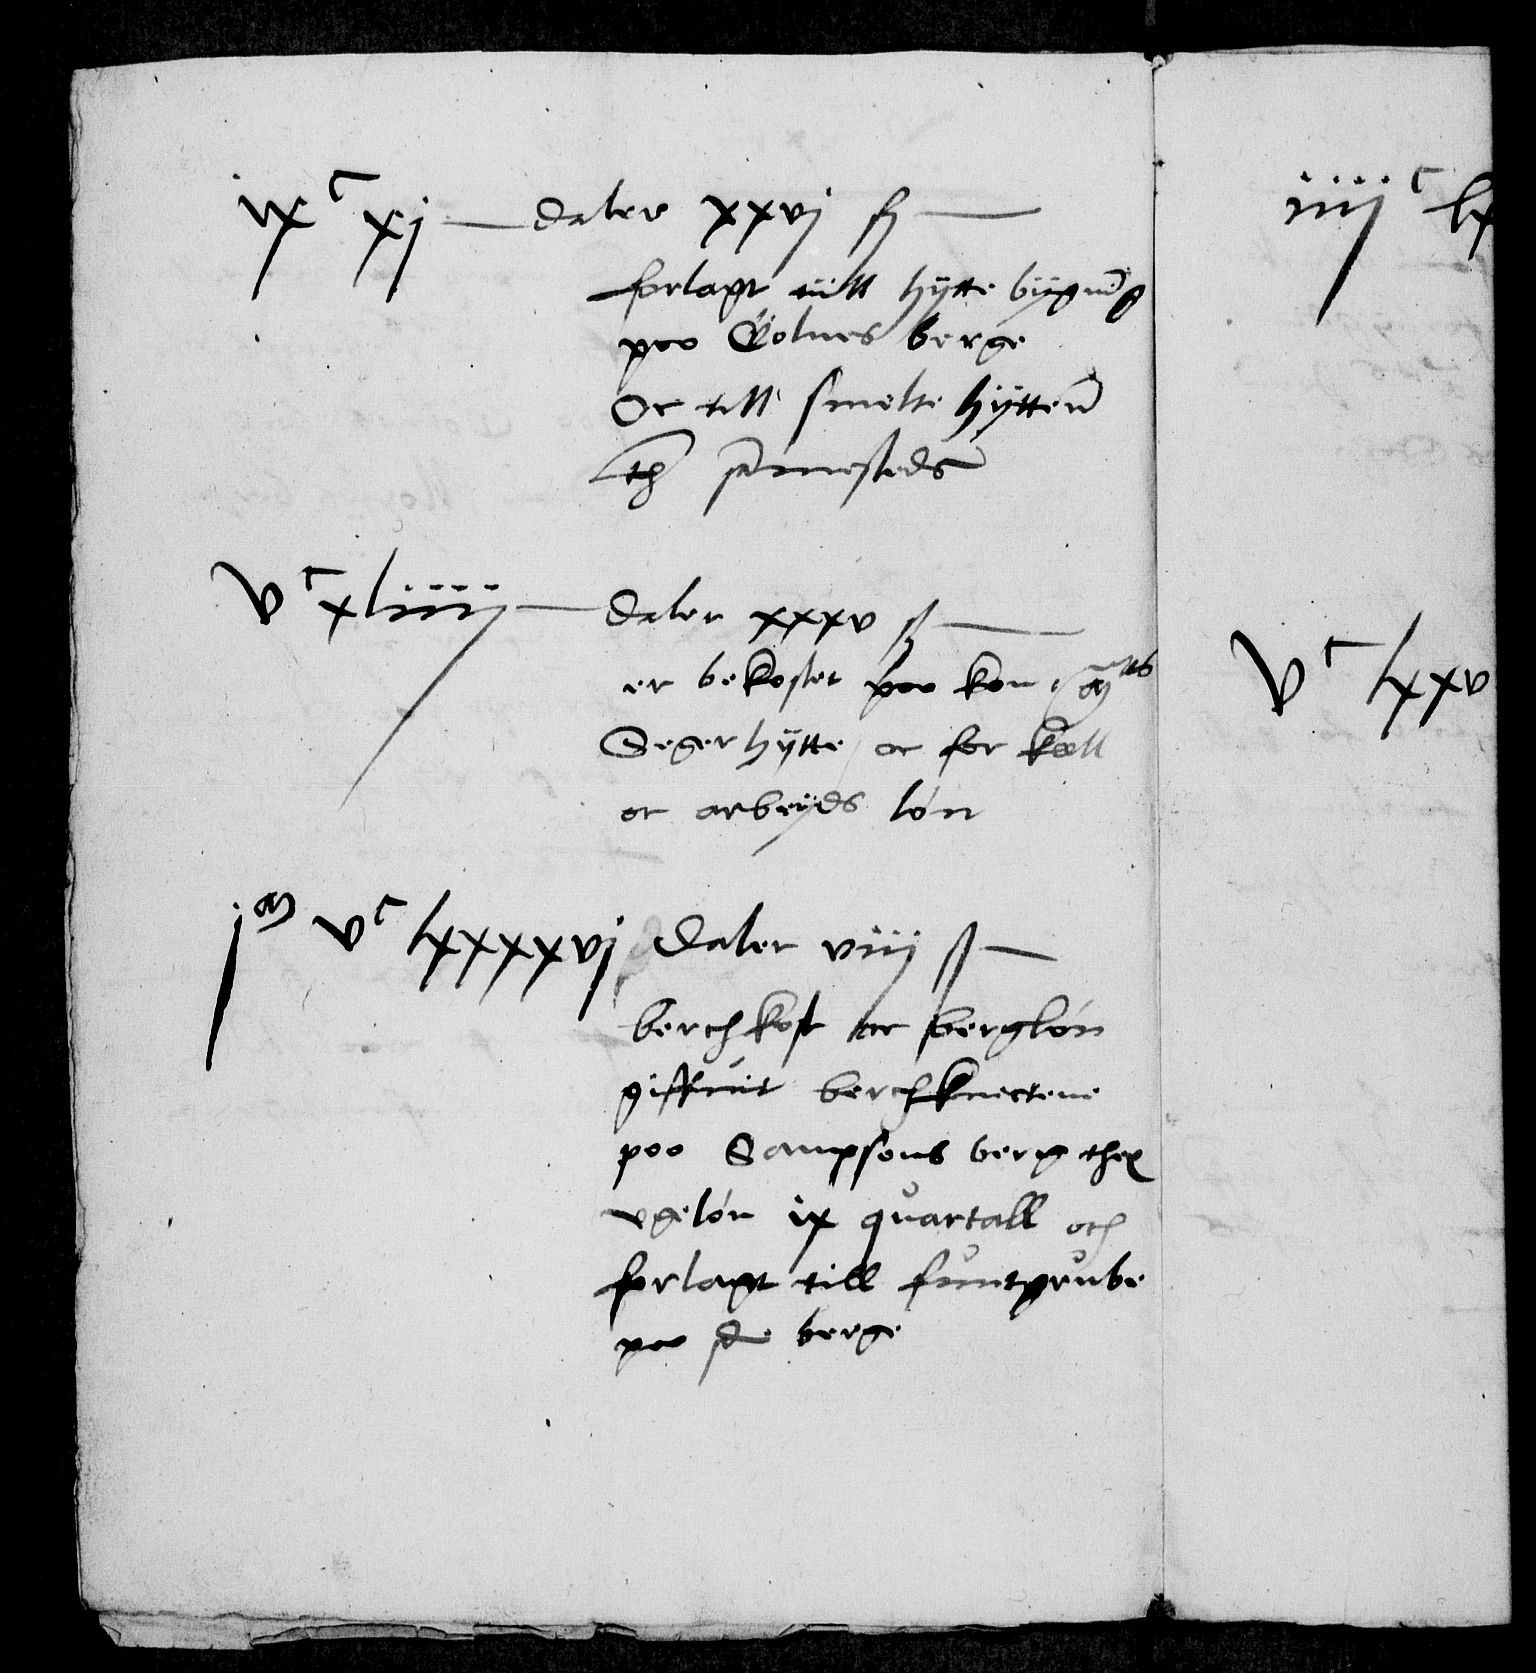 ixᶜ xj daler xxvj ß
forlagt till hÿtte bÿgni̅g
poo Golnes berge
Oc till smelte hÿtten̅
th̅ sa̅mesteds
vᶜ xliiij daler xxxv ß
er bekostet poo kon: Mᵗᵗˢ
Seger hÿtte / oc for koell
oc arbeÿds løn
jᵐ vᶜ lxxxxvj daler viij ß
berch kost oc bergløn
giffuit berchknectene
poo Sampsons berg theꝭ
vgeløn ix quartall och
forlagt till funtgrube
poo sa̅me berge
iiijᶜ lx
vᶜ lxxv